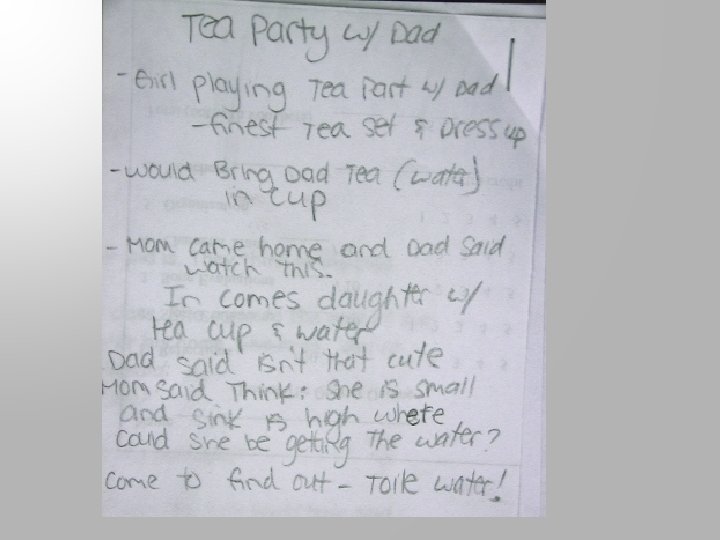 Tea Party w/ Dad
1
- Girl playing Tea Part w/ Dad
- finest Tea set & Dress up
- would Bring Dad Tea (water)
in cup
- Mom came home and Dad said
watch This.
In comes daughter w/
tea cup & water
Dad said isn't that cute
Mom said Think: she is small
and sink is high where
could she be getting The water?
come to find out - Toile water!